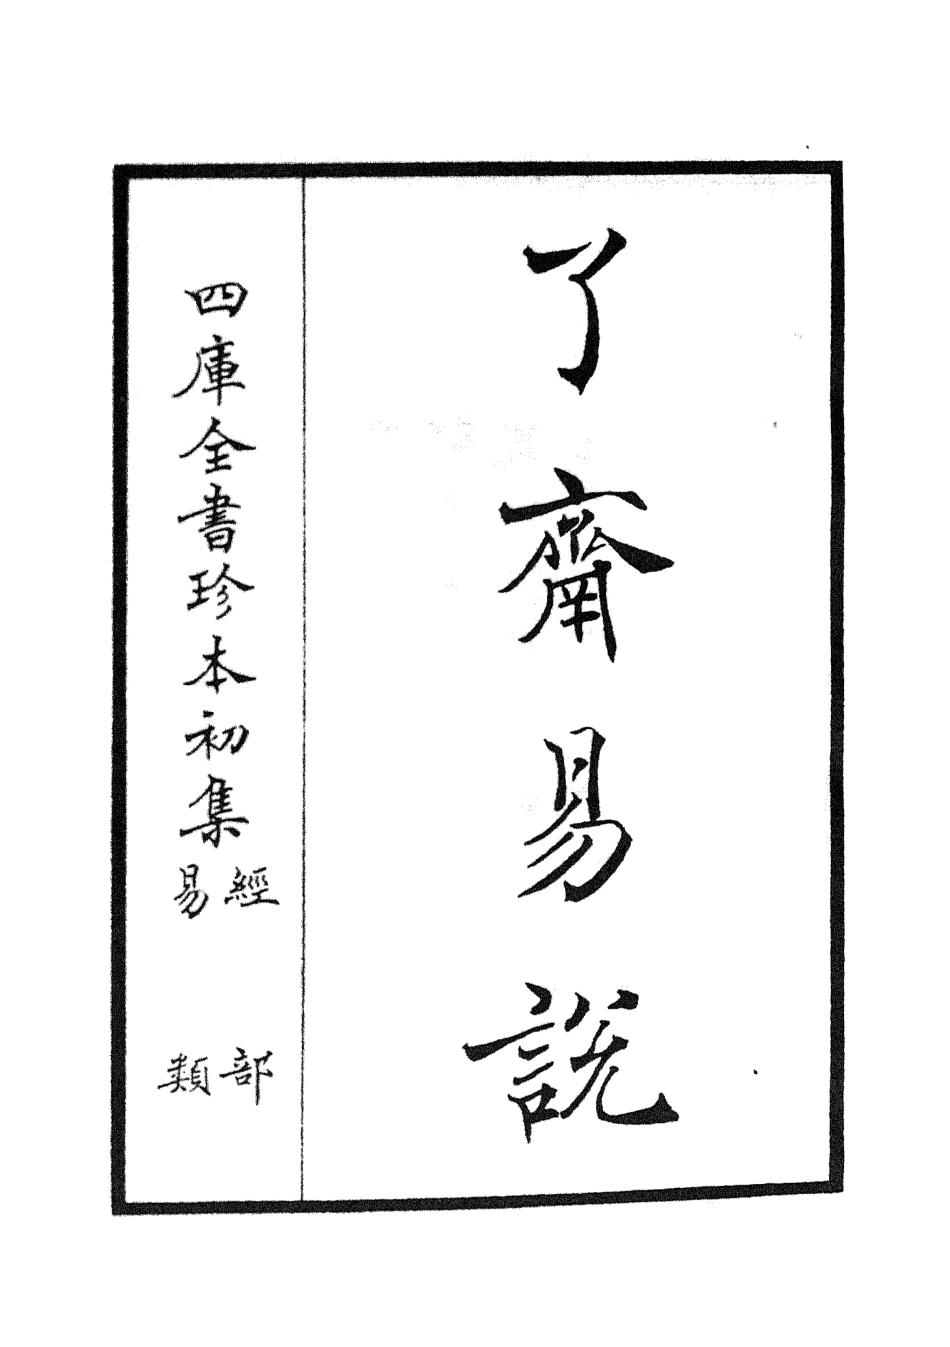 了齋易說
四庫全書珍本初集
經部
易類